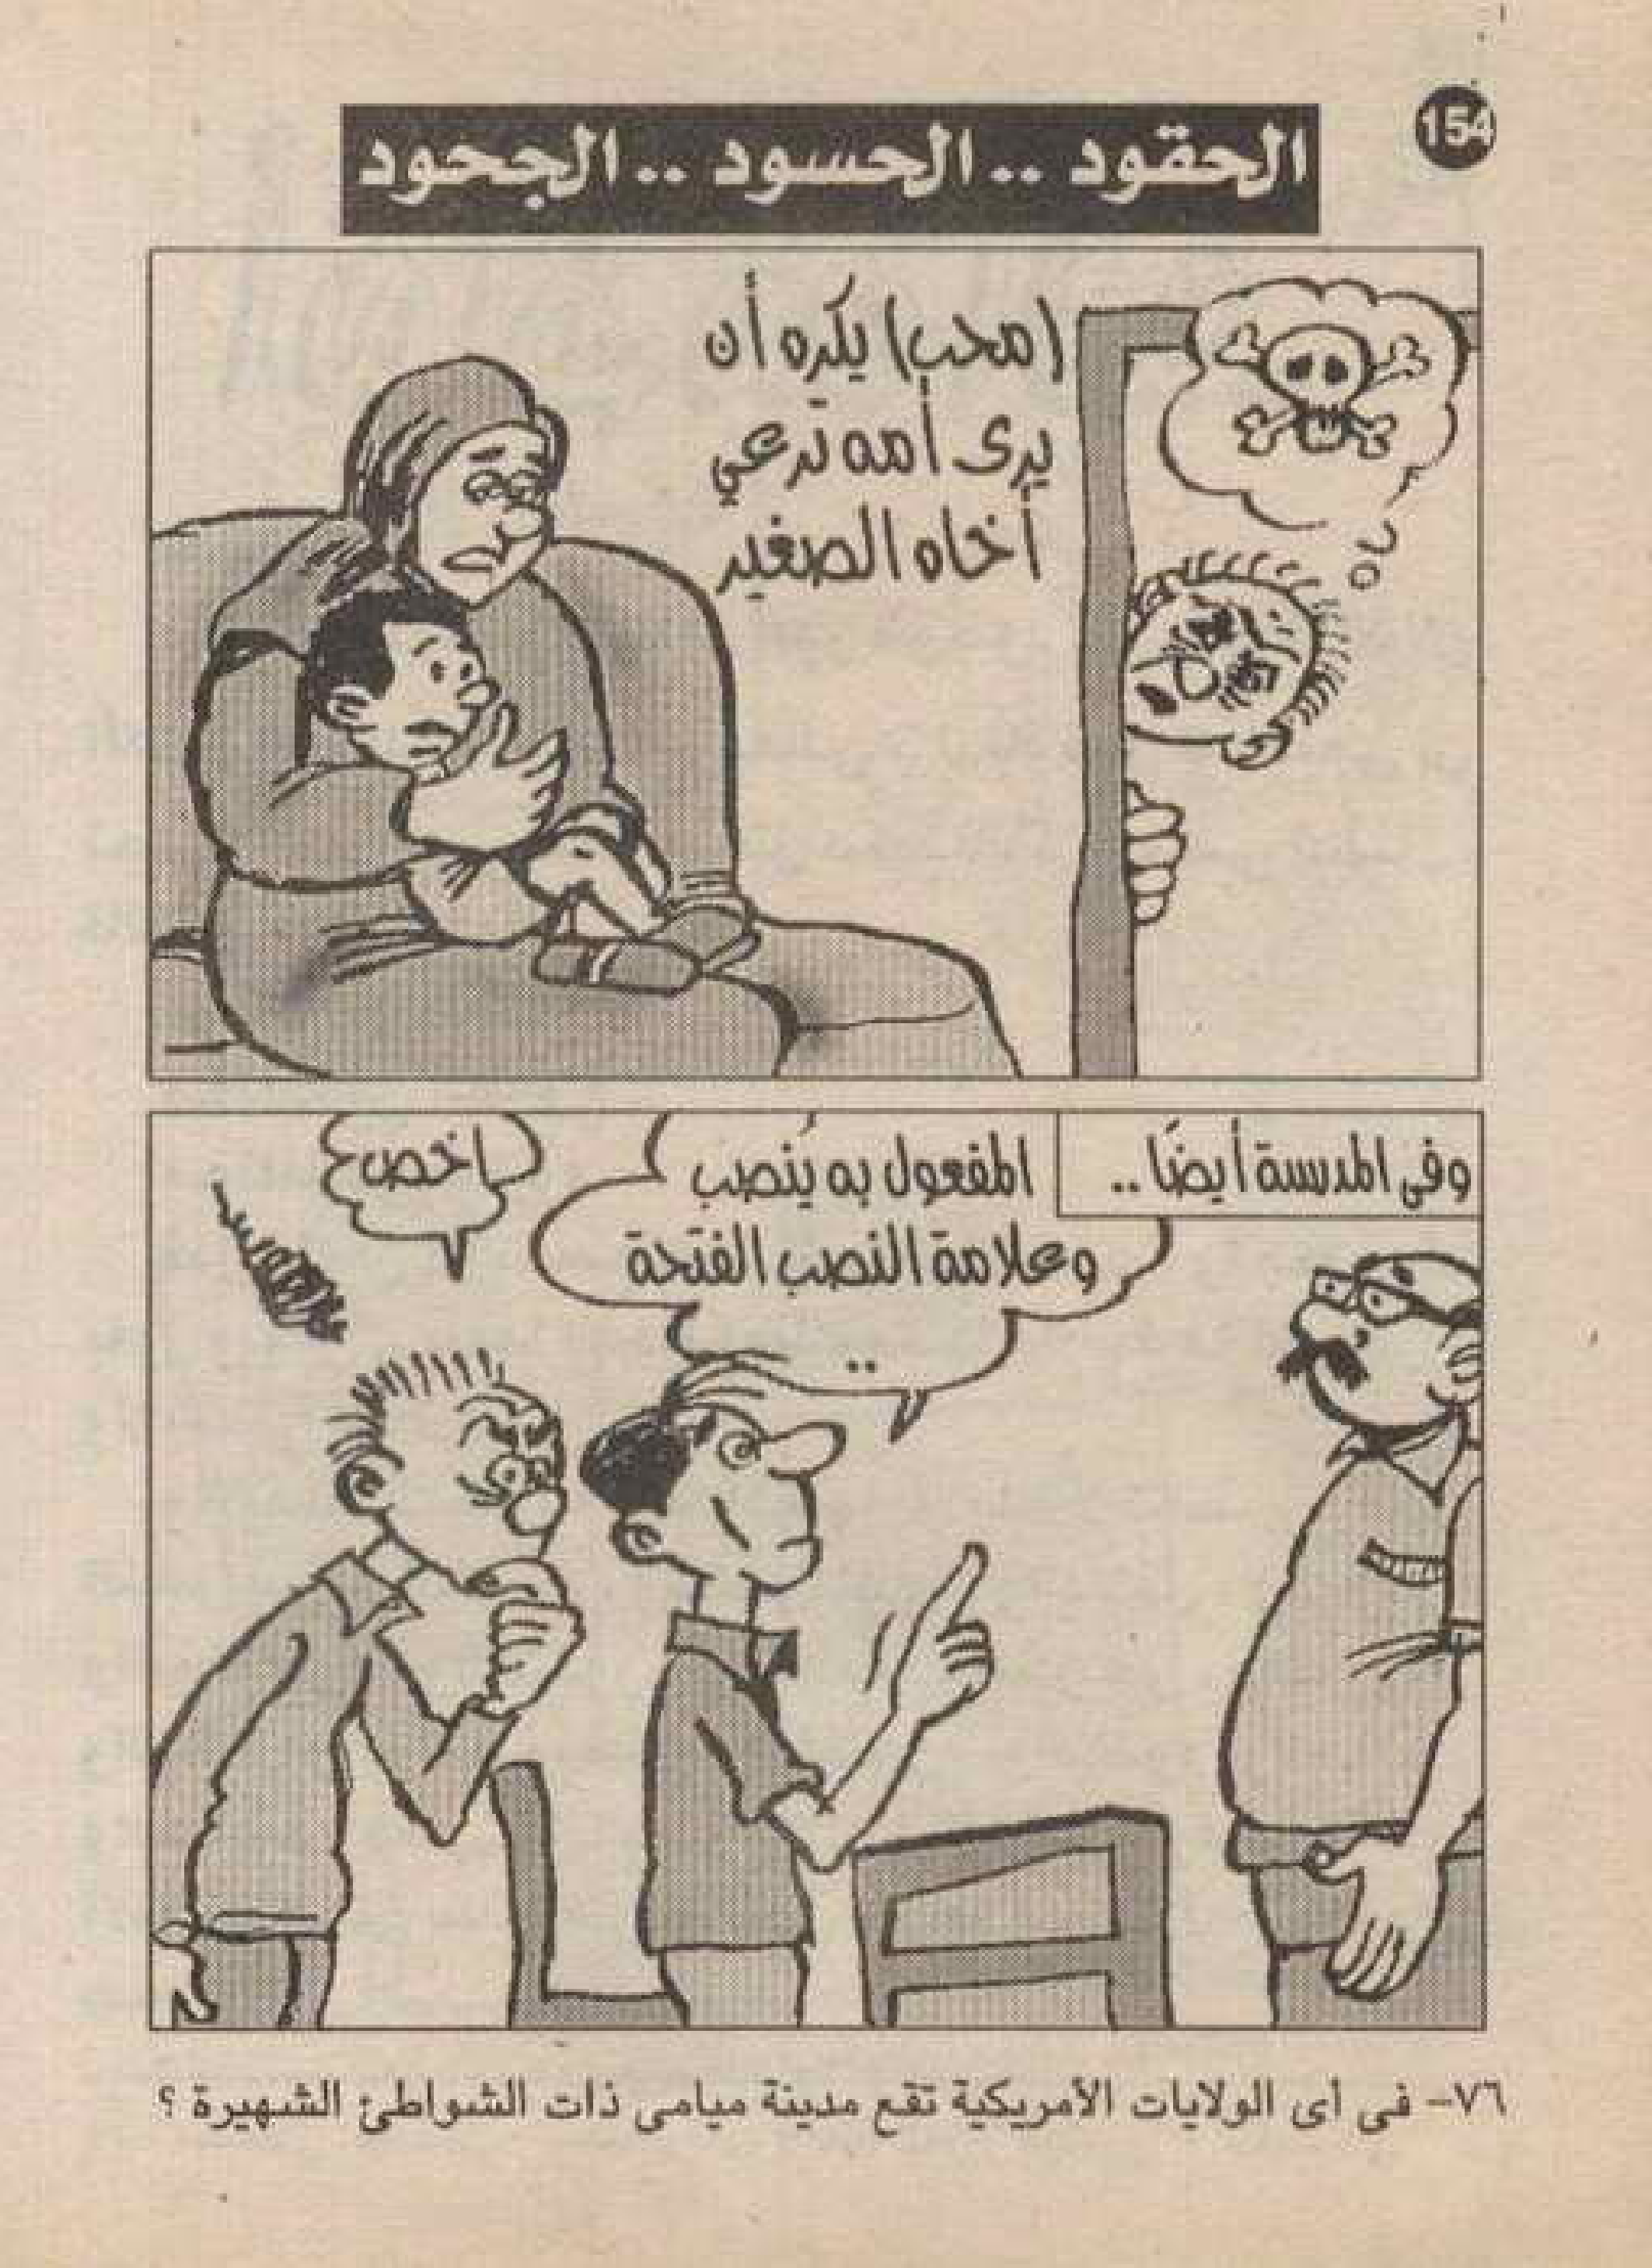 154
الحقود .. الحسود .. الجحود
(محب) يكره أن
يرى أمه ترعي
أخاه الصغير
وفى المدرسة أيضًا ..
المفعول به يُنصب
وعلامة النصب الفتحة
..
اخص
٧٦- فى أى الولايات الأمريكية تقع مدينة ميامى ذات الشواطئ الشهيرة ؟